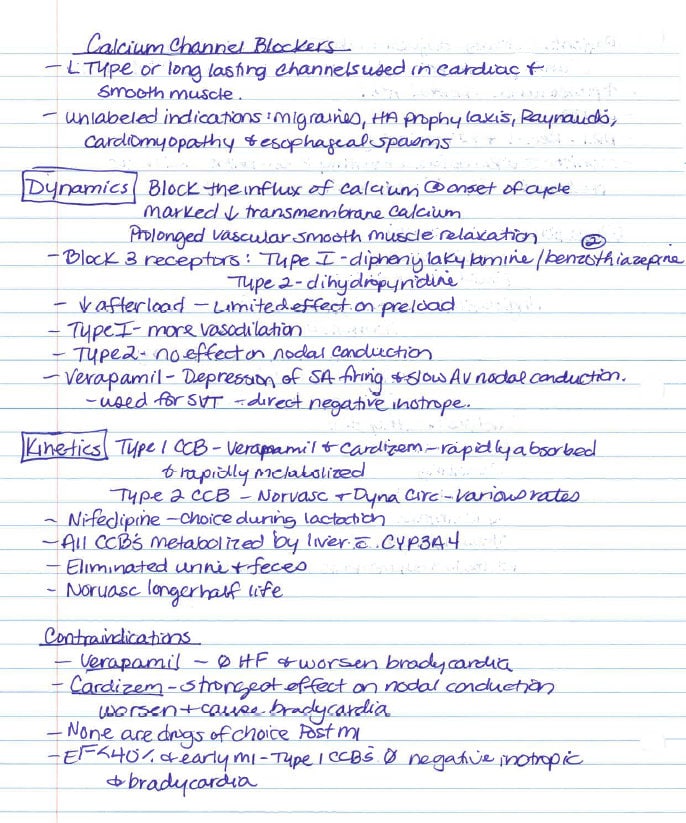 Calcium Channel Blockers
- L Type or long lasting channels used in cardiac +
smooth muscle.
- unlabeled indications: migraines, HA prophylaxis, Raynauds,
cardiomyopathy + esophageal spasms
Dynamics Block the influx of calcium @ onset of cycle
marked ↓ transmembrane calcium
Prolonged vascular smooth muscle relaxation
- Block 3 receptors: Type I - diphenylakylamine/benzothiazepine ②
Type 2 - dihydropyridine
- ↓ afterload - Limited effect on preload
- Type I - more vasodilation
- Type 2 - no effect on nodal conduction
- Verapamil - Depression of SA firing + slow AV nodal conduction.
- used for SVT - direct negative inotrope.
Kinetics Type 1 CCB - Verapamil + Cardizem - rapidly absorbed
+ rapidly metabolized
Type 2 CCB - Norvasc + Dyna Circ - various rates
- Nifedipine - choice during lactation
- All CCB's metabolized by liver c̄ CYP3A4
- Eliminated urine + feces
- Norvasc longer half life
Contraindications
- Verapamil - Ø HF + worsen bradycardia
- Cardizem - strongest effect on nodal conduction
worsen + cause bradycardia
- None are drugs of choice Post MI
- EF <40% + early MI - Type 1 CCB's Ø negative inotropic
+ bradycardia